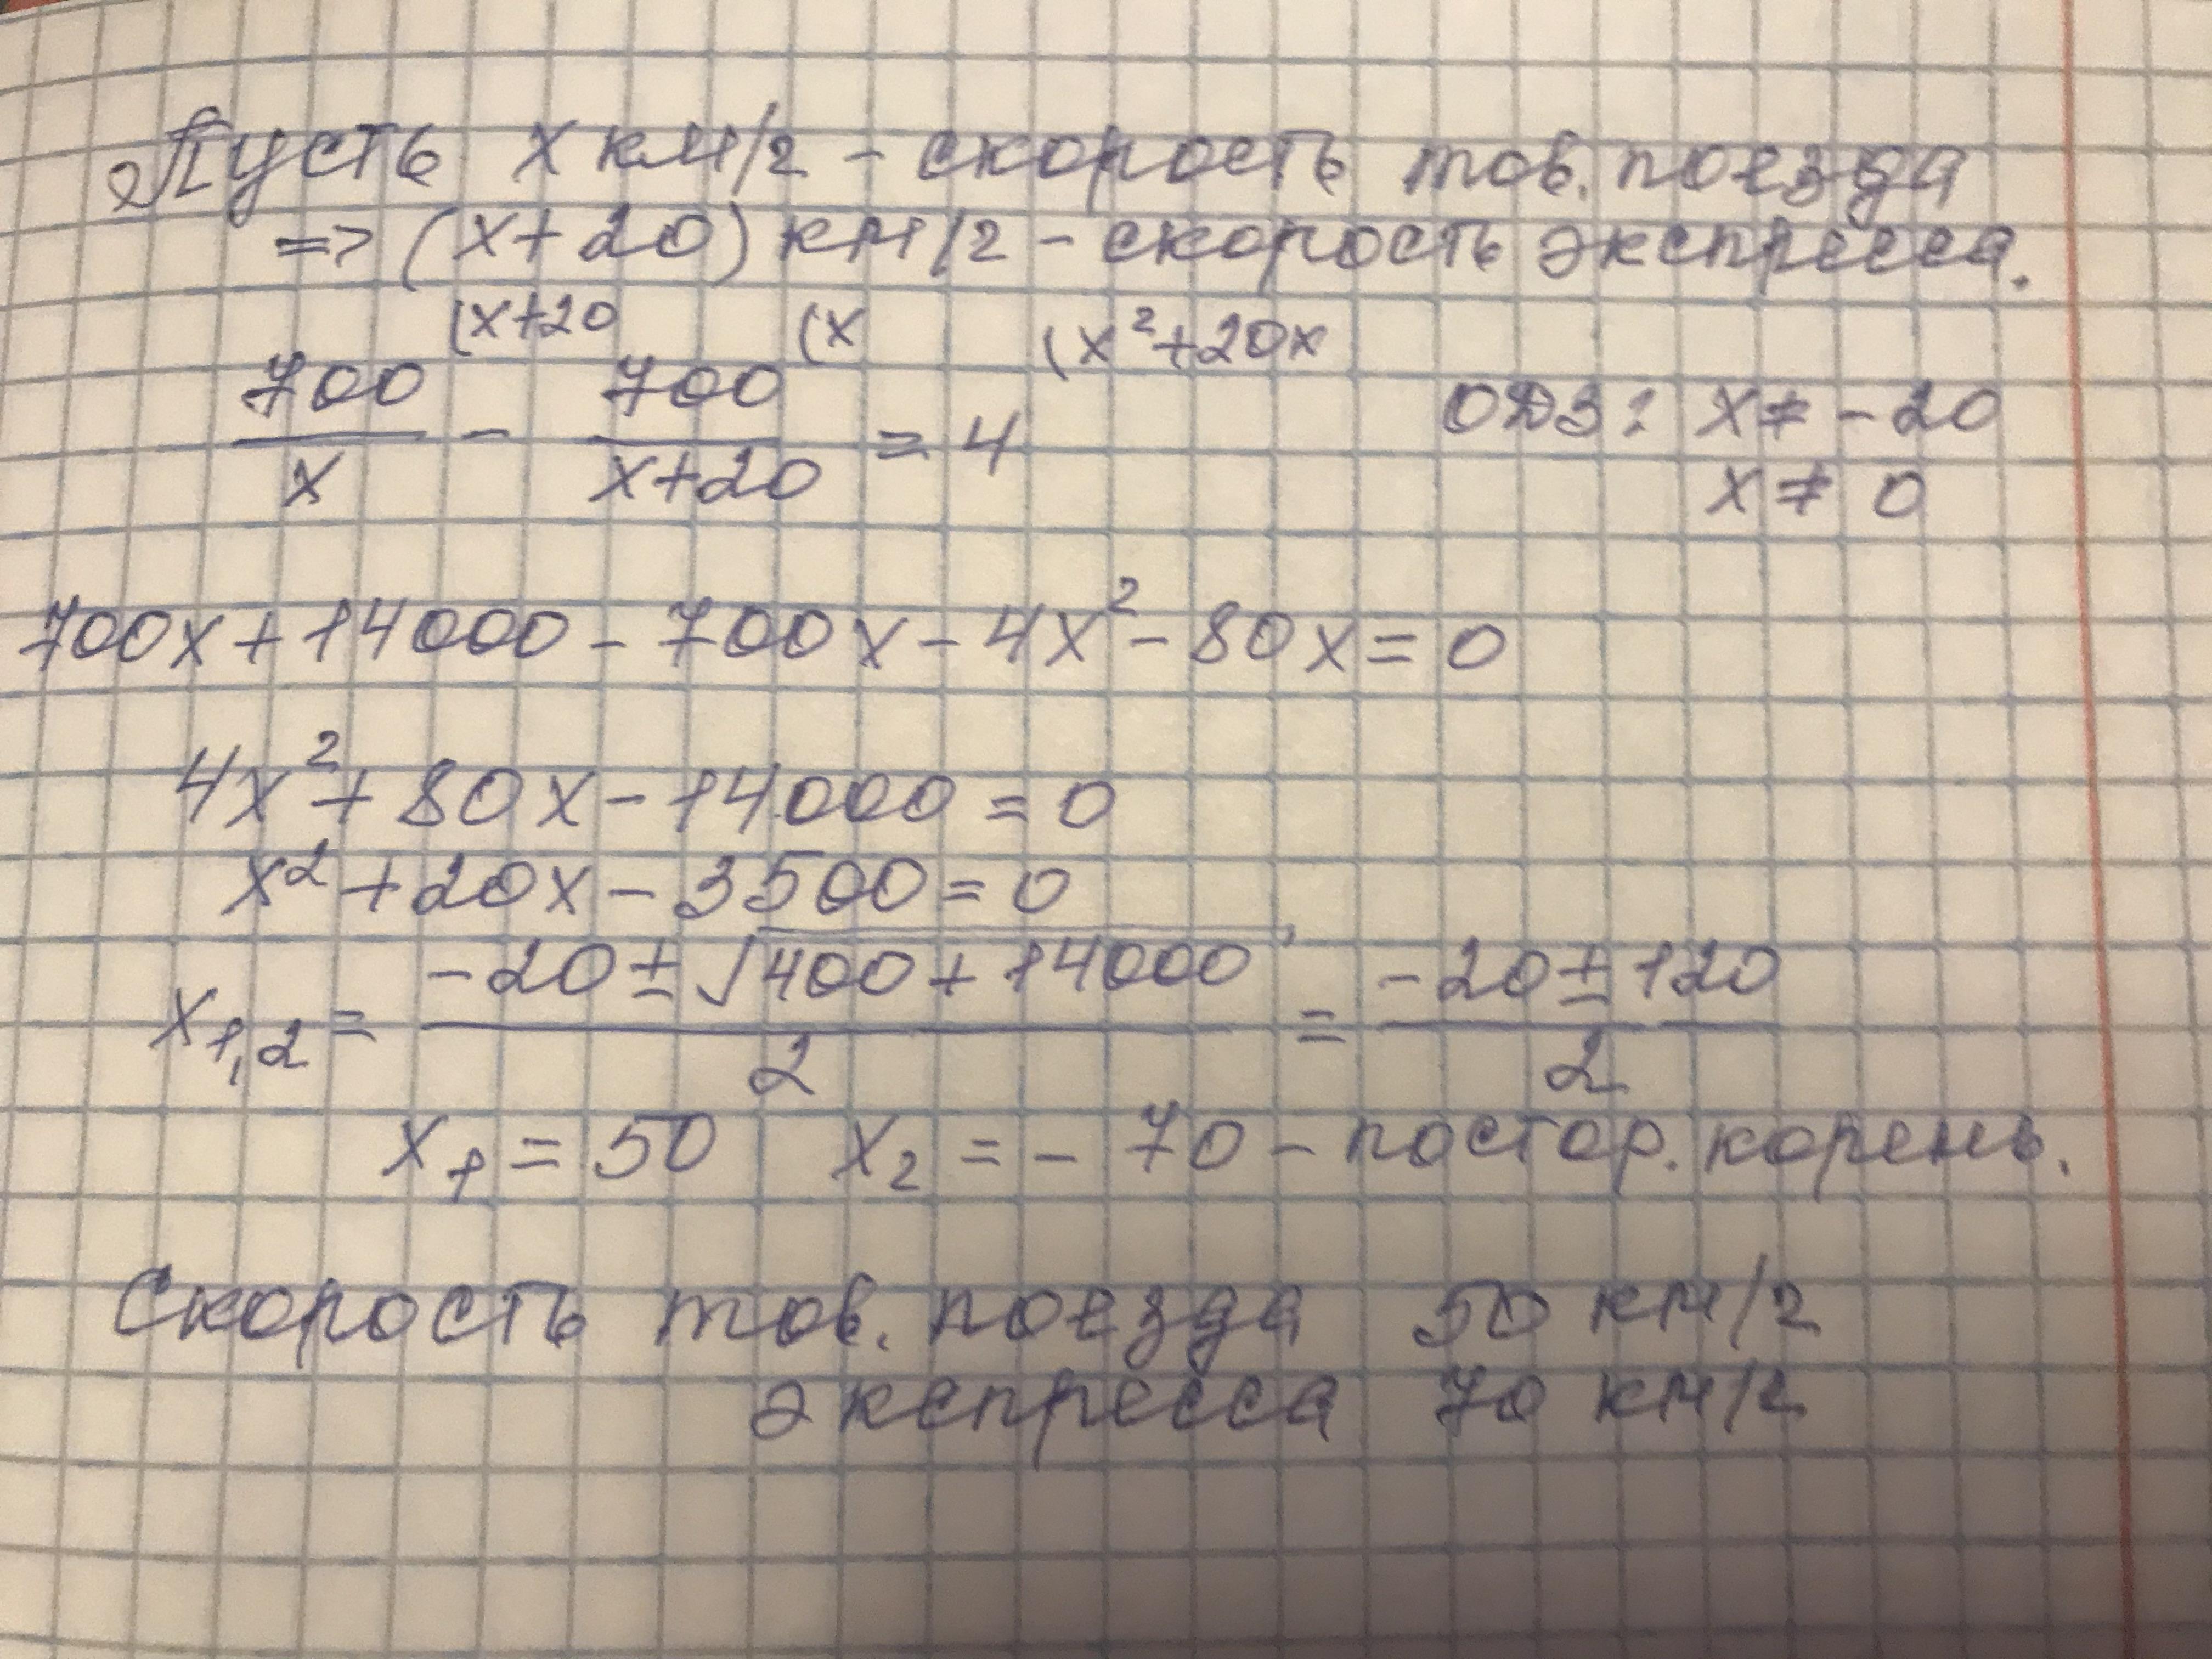 Пусть x км/г - скорость тов. поезда
=> (x+20) км/г - скорость экспресса.
(x+20 (x (x²+20x
700/x - 700/(x+20) = 4 ОДЗ: x ≠ -20
x ≠ 0
700x + 14000 - 700x - 4x² - 80x = 0
4x² + 80x - 14000 = 0
x² + 20x - 3500 = 0
x₁,₂ = (-20 ± √(400 + 14000))/2 = (-20 ± 120)/2
x₁ = 50 x₂ = - 70 - постор. корень.
Скорость тов. поезда 50 км/г
экспресса 70 км/г